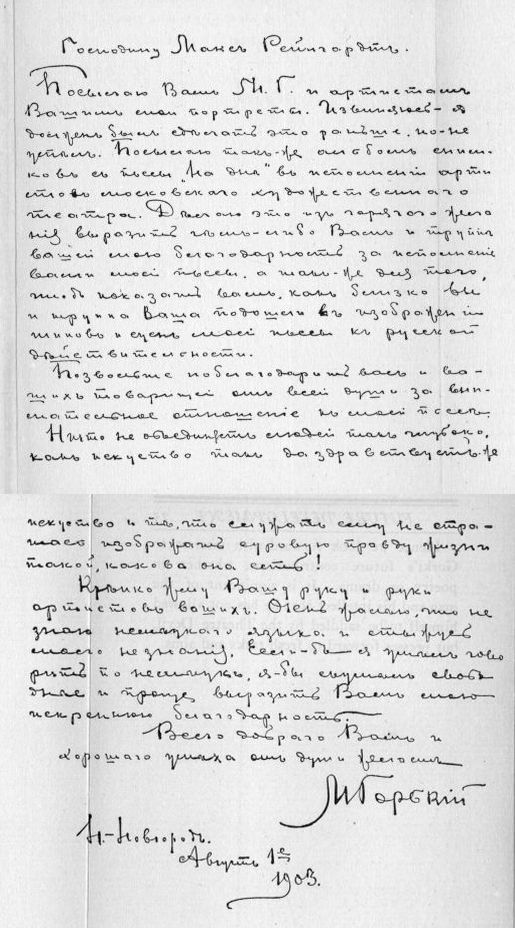 Господину Максъ Рейнгардтъ.
Посылаю Вамъ М. Г. и артистамъ
Вашимъ мои портреты. Извиняюсь – я
долженъ былъ сдѣлать это раньше, но – не
успѣлъ. Посылаю такъ-же альбомъ сним-
ковъ съ пьесы „На днѣ" въ исполненiи арти
стовъ московскаго художественнаго
театра. Дѣлаю это изъ горячаго жела
нiя выразить чѣмъ-либо Вамъ и труппѣ
вашей мою благодарность за исполненiе
вами моей пьесы, а такъ-же для того,
чтобъ показать вамъ, какъ близко вы
и труппа Ваша подошли въ изображенiи
типовъ и сценъ моей пьесы къ русской
дѣйствительности.
Позвольте поблагодарить васъ и ва-
шихъ товарищей отъ всей души за вни-
мательное отношенiе къ моей пьесѣ.
Ничто не объединяетъ людей такъ глубоко,
какъ искуство – такъ да здравствуетъ-же
искуство и тѣ, что служатъ ему не стра-
шась изображать суровую правду жизни
такой, какова она есть!
Крѣпко жму Вашу руку и руки
артистовъ вашихъ. Очень жалѣю, что не
знаю немецкаго языка и стыжусь
моего незнанiя. Если-бъ я умѣлъ гово
рить по немецки, я-бы сумѣлъ свобо
днѣе и проще выразить Вамъ мою
искреннюю благодарность.
Всего добраго Вамъ и
хорошаго успѣха отъ души желаю
М Горькiй
Н.-Новгородъ.
Августъ 1е
1903.